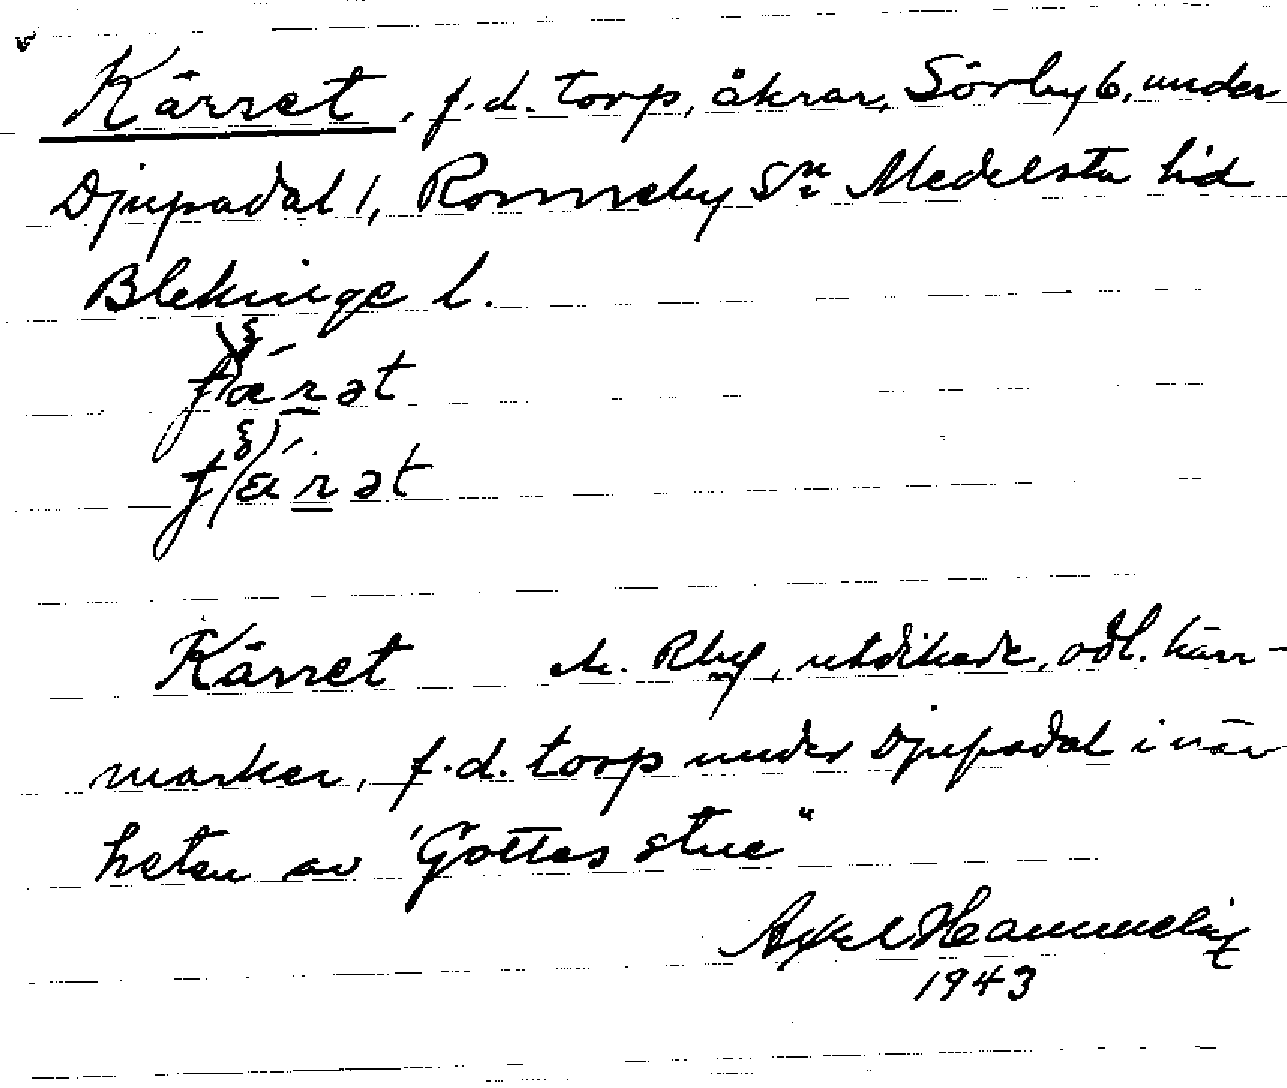 Kärret, f.d. torp, åkrar, Sörby 6, under
Djupadal 1, Ronneby Sn Medelsta hd
Blekinge l.
Kärret Rby, utdikade, odl. kärr-
marker, f.d. torp under Djupadal i när
heten av "Gottes stue"
Axel
1943